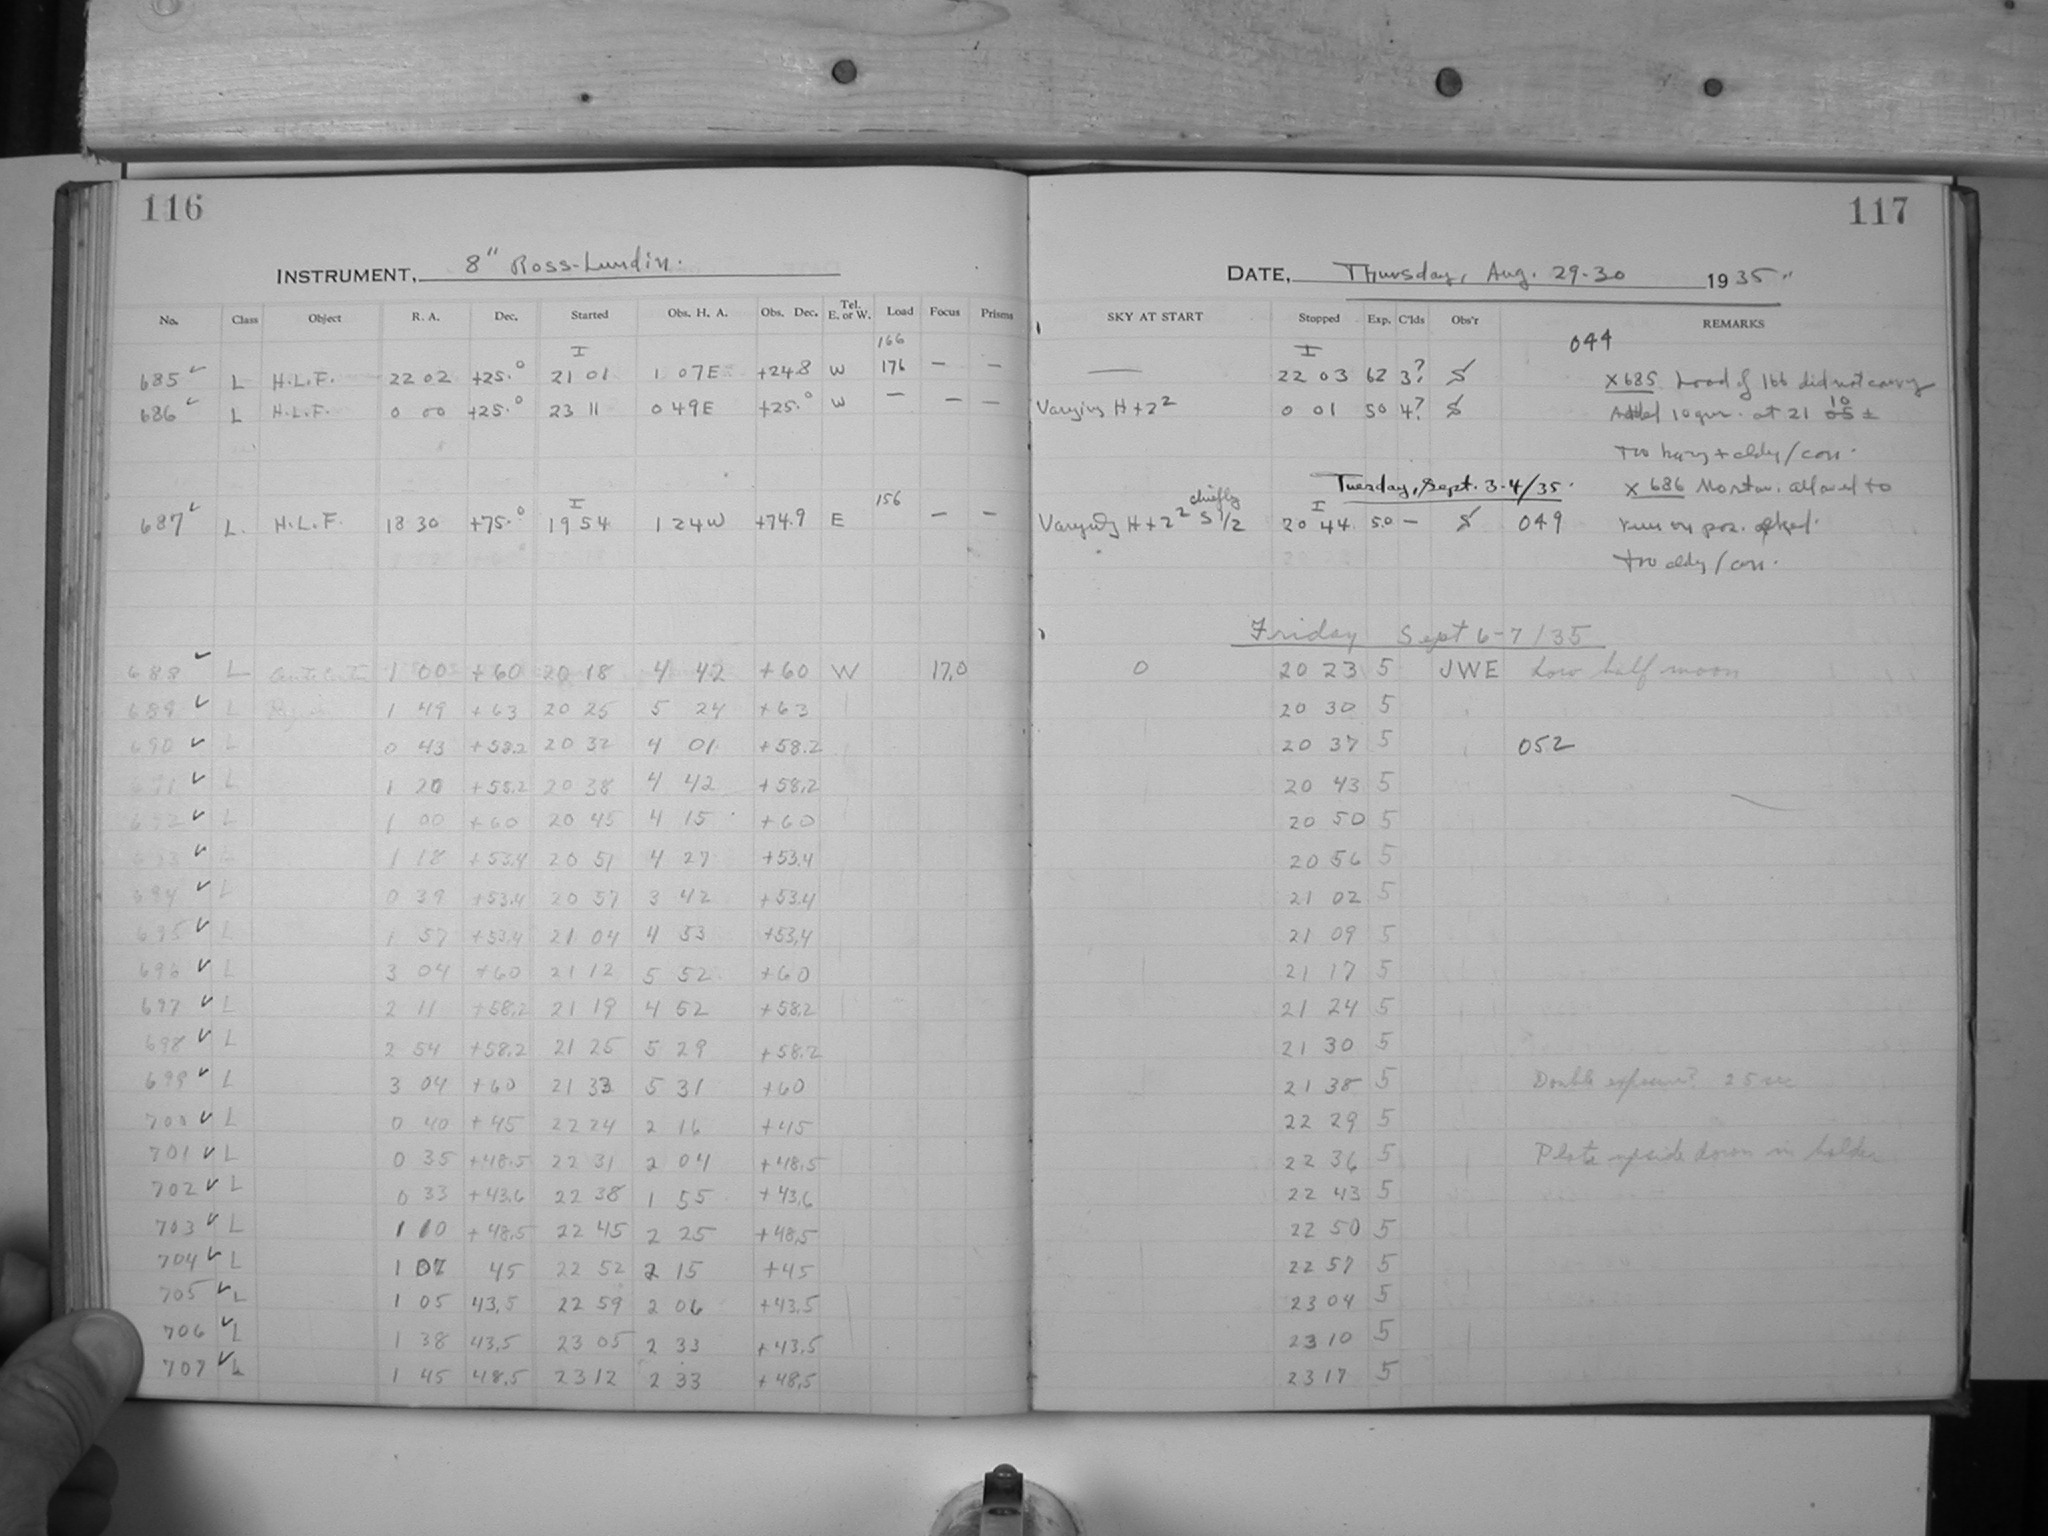 116
INSTRUMENT, 8" Ross-Lundin.
No. Class Object R. A. Dec. Started Obs. H. A. Obs. Dec. Tel. E. or W. Load Focus Prisms
I 166
685 ✓ L H.L.F. 22 02 +25.° 21 01 1 07E +24.8 W 176 — —
686 ✓ L H.L.F. 0 00 +25.° 23 11 0 49E +25.° W — — —
I 156
687 ✓ L. H.L.F. 18 30 +75.° 19 54 1 24W +74.9 E — —
688 ✓ L 1 00 +60 20 18 4 42 +60 W 17.0
689 ✓ L 1 49 +63 20 25 5 24 +63
690 ✓ L 0 43 +58.2 20 32 4 01 +58.2
691 ✓ L 1 20 +58.2 20 38 4 42 +58.2
692 ✓ L 1 00 +60 20 45 4 15 +60
693 ✓ L 1 18 +53.4 20 51 4 27 +53.4
694 ✓ L 0 39 +53.4 20 57 3 42 +53.4
695 ✓ L 1 57 +53.4 21 04 4 53 +53.4
696 ✓ L 3 04 +60 21 12 5 52 +60
697 ✓ L 2 11 +58.2 21 19 4 52 +58.2
698 ✓ L 2 54 +58.2 21 25 5 29 +58.2
699 ✓ L 3 04 +60 21 33 5 31 +60
700 ✓ L 0 40 +45 22 24 2 16 +45
701 ✓ L 0 35 +48.5 22 31 2 04 +48.5
702 ✓ L 0 33 +43.6 22 38 1 55 +43.6
703 ✓ L 1 10 +48.5 22 45 2 25 +48.5
704 ✓ L 1 07 45 22 52 2 15 +45
705 ✓ L 1 05 43.5 22 59 2 06 +43.5
706 ✓ L 1 38 43.5 23 05 2 33 +43.5
707 ✓ L 1 45 48.5 23 12 2 33 +48.5
117
DATE, Thursday, Aug. 29-30 1935
SKY AT START Stopped Exp. C'lds Obs'r REMARKS
I 044
— 22 03 62 3? S X 685 Load of 166 did not carry
Varying H+2² 0 01 50 4? S Added 10 gm. at 21 05 10 ±
too hazy + cldy/con.
Tuesday, Sept. 3-4/35. X 686 allowed to
chiefly I
Varying H+2² S 1/2 20 44 50 — S 049 run on
too cldy/con.
Friday Sept 6-7/35
0 20 23 5 JWE Low half moon
20 30 5
20 37 5 052
20 43 5
20 50 5
20 56 5
21 02 5
21 09 5
21 17 5
21 24 5
21 30 5
21 38 5 Double exposure? 25 sec
22 29 5
22 36 5 Plate upside down in holder
22 43 5
22 50 5
22 57 5
23 04 5
23 10 5
23 17 5